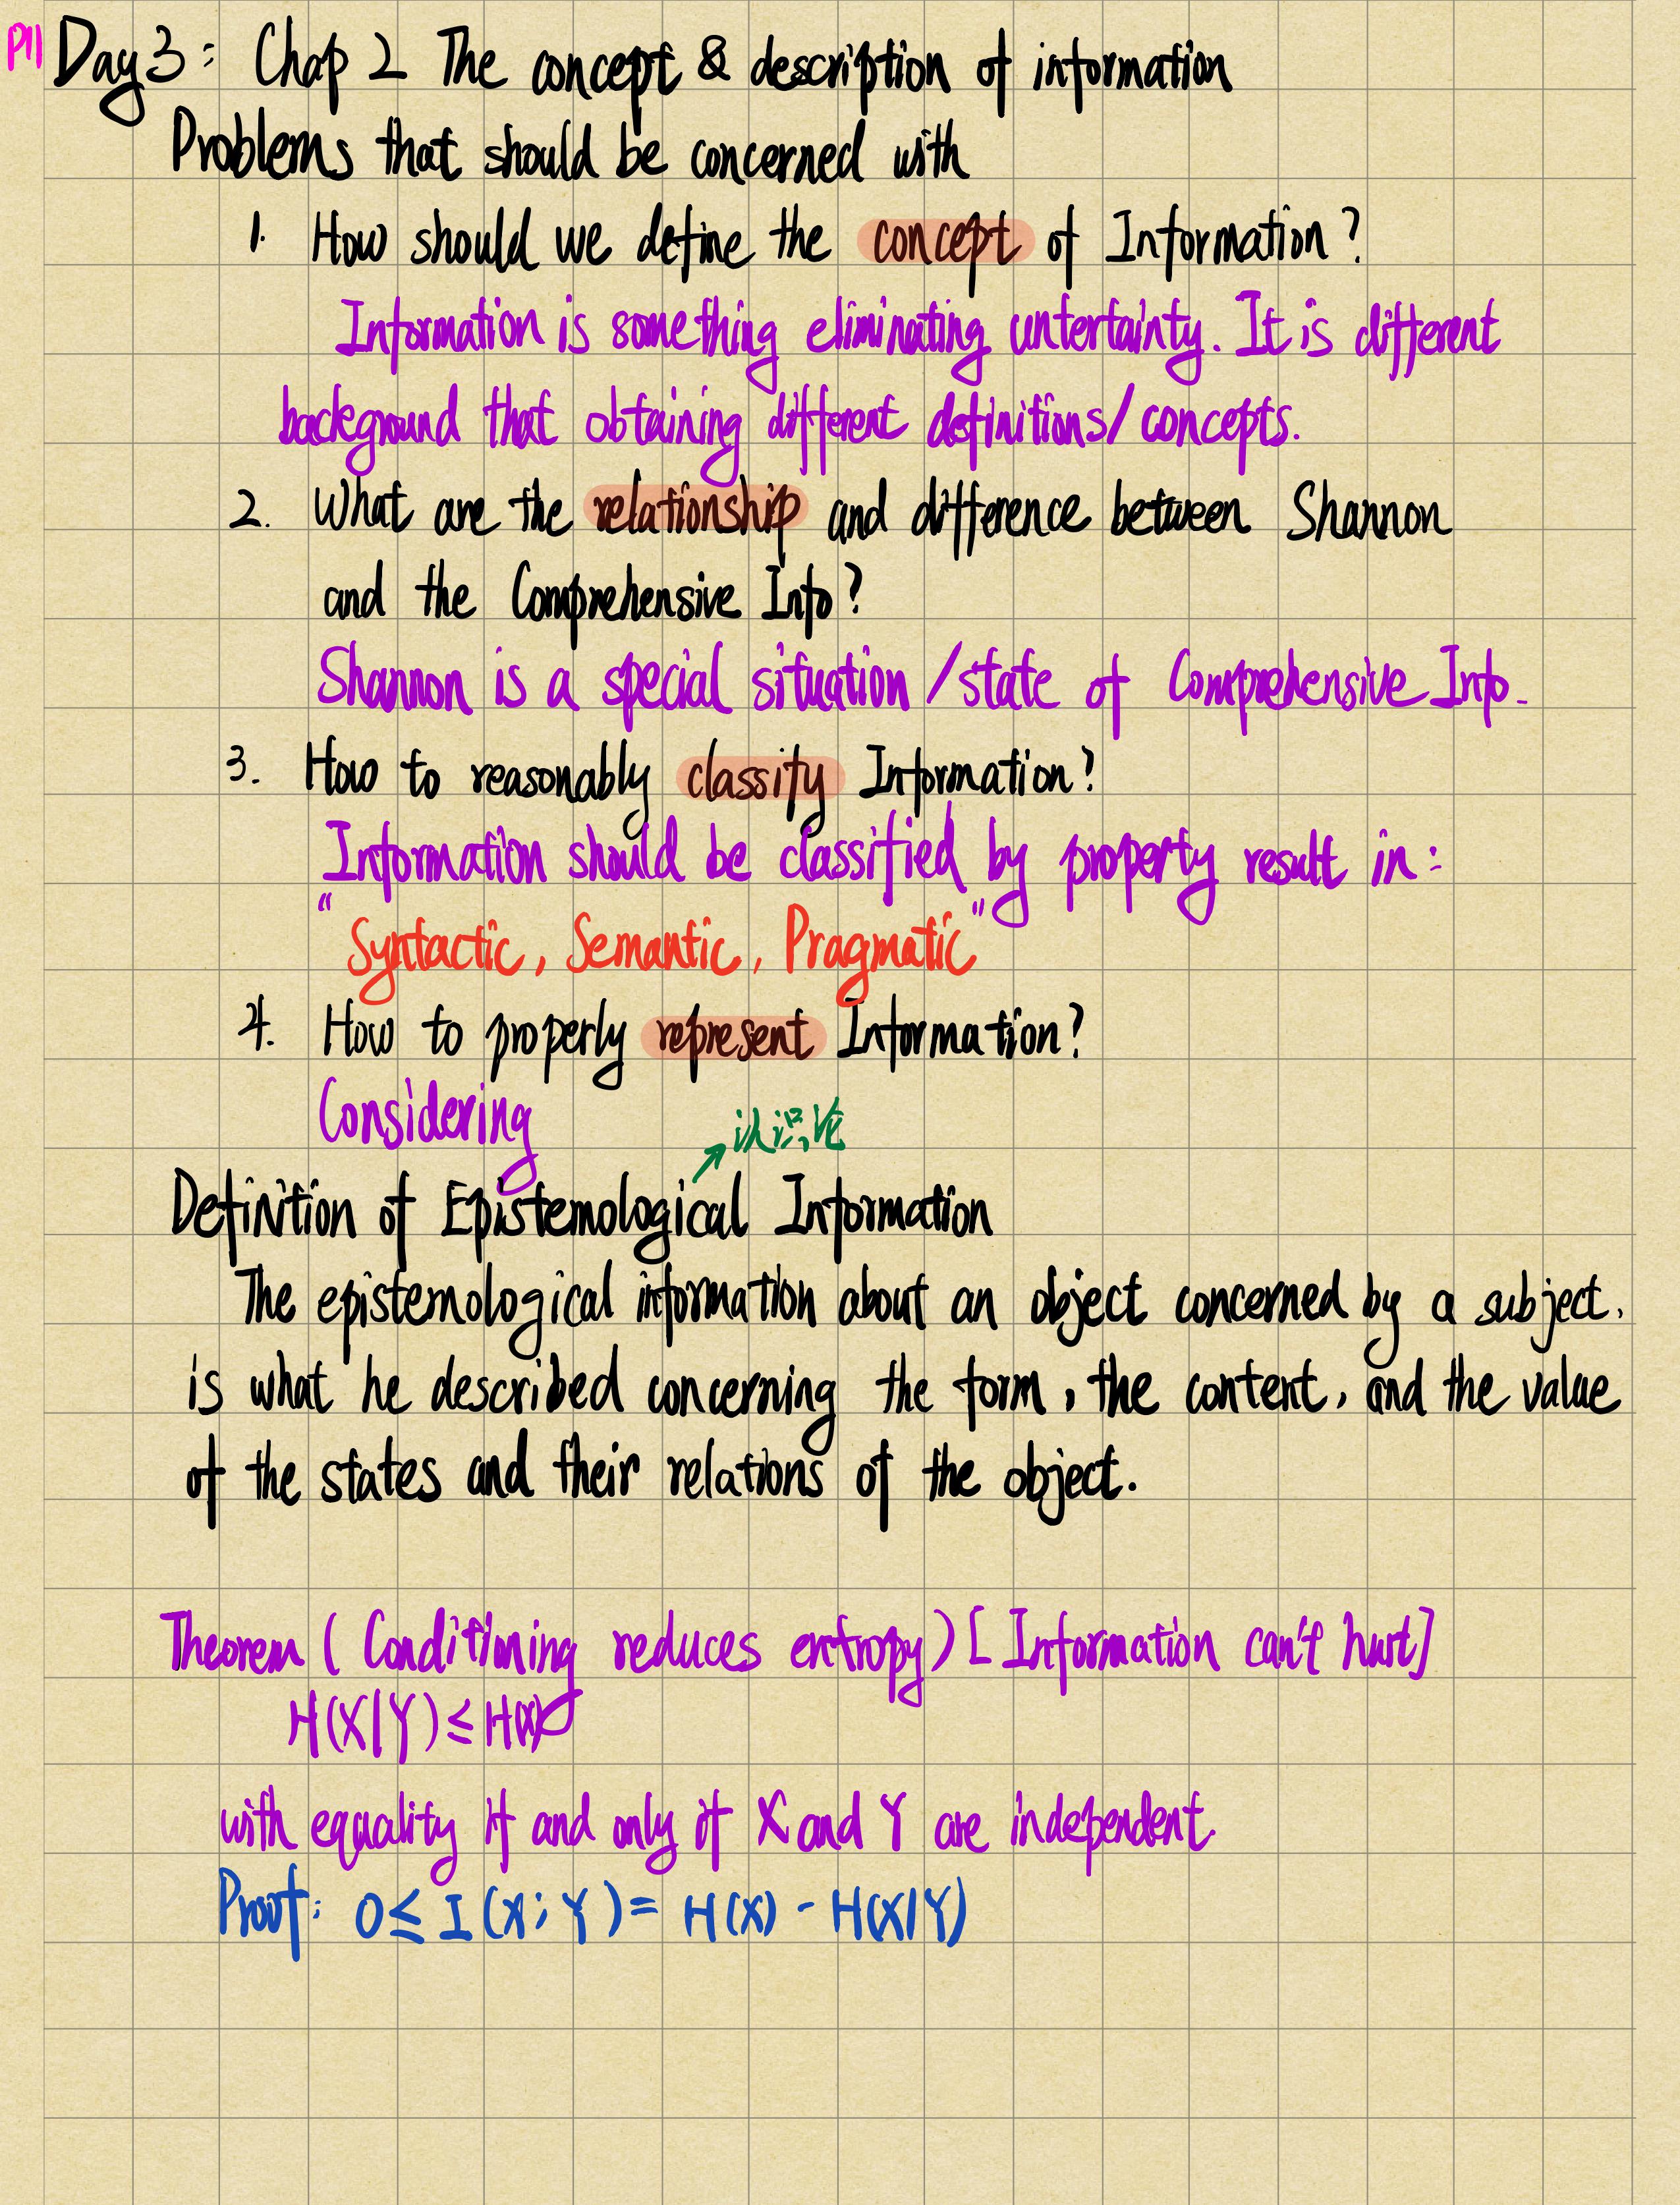 P11 Day 3: Chap 2 The concept & description of information
Problems that should be concerned with
1. How should we define the concept of Information?
Information is something eliminating untertainty. It is different
background that obtaining different definitions/concepts.
2. What are the relationship and difference between Shannon
and the Comprehensive Info?
Shannon is a special situation/state of Comprehensive Info.
3. How to reasonably classify Information?
Information should be classified by property result in:
"Syntactic, Semantic, Pragmatic"
4. How to properly represent Information?
Considering
认识论
Definition of Epistemological Information
The epistemological information about an object concerned by a subject,
is what he described concerning the form, the content, and the value
of the states and their relations of the object.
Theorem (Conditioning reduces entropy) [Information can't hurt]
H(X|Y) ≤ H(X)
with equality if and only if X and Y are independent.
Proof: 0 ≤ I(X;Y) = H(X) - H(X|Y)